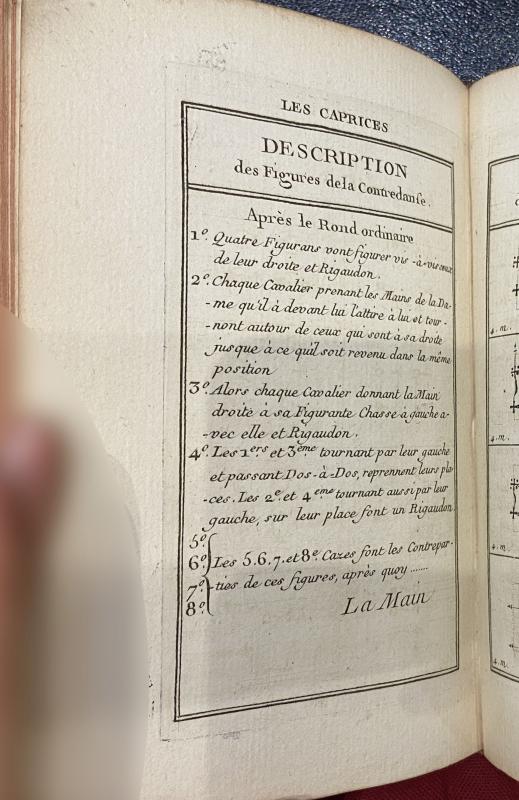 LES CAPRICES
DESCRIPTION
des Figures dela Contredanse.
Après le Rond ordinaire
1º. Quatre Figurans vont figurer vis-à-vis ceux
de leur droite et Rigaudon.
2º. Chaque Cavalier prenant les Mains de la Da-
-me qu'il à devant lui l'attire à lui et tour-
-nont autour de ceux qui sont à sa droite
jusque à ce qu'il soit revenu dans la même
position
3º. Alors chaque Cavalier donnant la Main
droite à sa Figurante Chasse à gauche a-
-vec elle et Rigaudon.
4º. Les 1ers et 3ème tournant par leur gauche
et passant Dos-à-Dos, reprennent leurs pla-
-ces. Les 2e. et 4eme tournant aussi par leur
gauche, sur leur place font un Rigaudon.
5º.
6º. Les 5.6.7. et 8e. Cazes font les Contrepar-
7º. -ties de ces figures, après quoy ......
8º. La Main
4. m.
4. m.
4. m.
4. m.